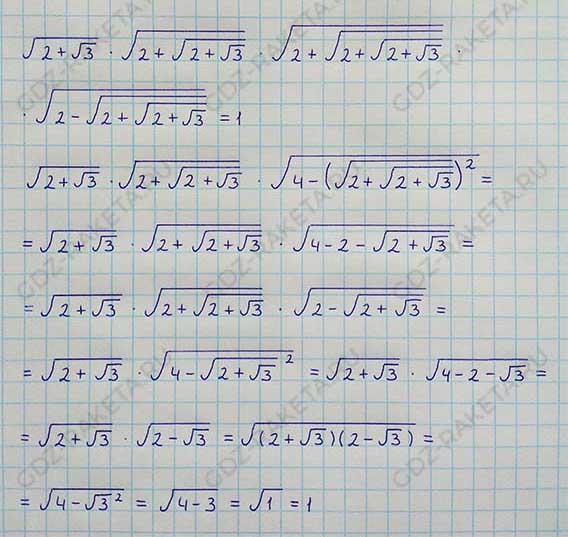 √(2+√3) · √(2+√(2+√3)) · √(2+√(2+√(2+√3))) ·
· √(2-√(2+√(2+√3))) = 1
√(2+√3) · √(2+√(2+√3)) · √(4-(√(2+√(2+√3)))²) =
= √(2+√3) · √(2+√(2+√3)) · √(4-2-√(2+√3)) =
= √(2+√3) · √(2+√(2+√3)) · √(2-√(2+√3)) =
= √(2+√3) · √(4-√(2+√3)²) = √(2+√3) · √(4-2-√3) =
= √(2+√3) · √(2-√3) = √((2+√3)(2-√3)) =
= √(4-√3²) = √(4-3) = √1 = 1
GDZ-RAKETA.RU